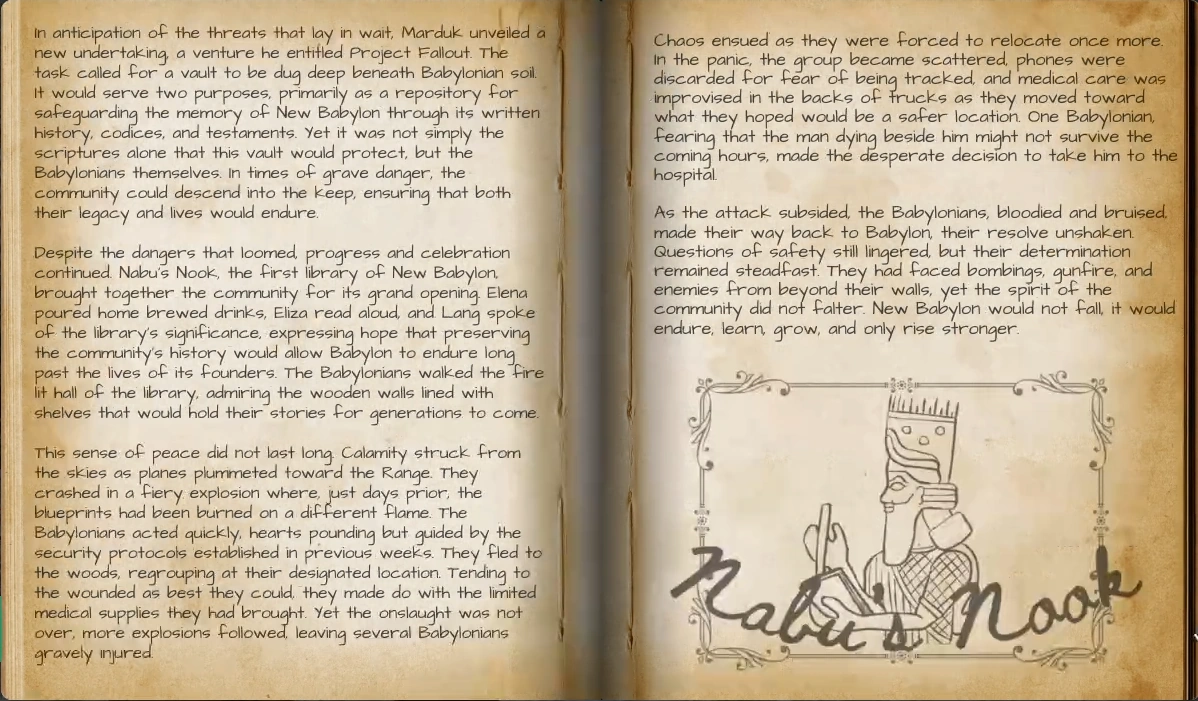 In anticipation of the threats that lay in wait, Marduk unveiled a
new undertaking, a venture he entitled Project Fallout. The
task called for a vault to be dug deep beneath Babylonian soil.
It would serve two purposes, primarily as a repository for
safeguarding the memory of New Babylon through its written
history, codices, and testaments. Yet it was not simply the
scriptures alone that this vault would protect, but the
Babylonians themselves. In times of grave danger, the
community could descend into the keep, ensuring that both
their legacy and lives would endure.

Despite the dangers that loomed, progress and celebration
continued. Nabu's Nook, the first library of New Babylon,
brought together the community for its grand opening. Elena
poured home brewed drinks, Eliza read aloud, and Lang spoke
of the library's significance, expressing hope that preserving
the community's history would allow Babylon to endure long
past the lives of its founders. The Babylonians walked the fire
lit hall of the library, admiring the wooden walls lined with
shelves that would hold their stories for generations to come.

This sense of peace did not last long. Calamity struck from
the skies as planes plummeted toward the Range. They
crashed in a fiery explosion where, just days prior, the
blueprints had been burned on a different flame. The
Babylonians acted quickly, hearts pounding but guided by the
security protocols established in previous weeks. They fled to
the woods, regrouping at their designated location. Tending to
the wounded as best they could, they made do with the limited
medical supplies they had brought. Yet the onslaught was not
over, more explosions followed, leaving several Babylonians
gravely injured.

Chaos ensued as they were forced to relocate once more.
In the panic, the group became scattered, phones were
discarded for fear of being tracked, and medical care was
improvised in the backs of trucks as they moved toward
what they hoped would be a safer location. One Babylonian,
fearing that the man dying beside him might not survive the
coming hours, made the desperate decision to take him to the
hospital.

As the attack subsided, the Babylonians, bloodied and bruised,
made their way back to Babylon, their resolve unshaken.
Questions of safety still lingered, but their determination
remained steadfast. They had faced bombings, gunfire, and
enemies from beyond their walls, yet the spirit of the
community did not falter. New Babylon would not fall, it would
endure, learn, grow, and only rise stronger.

Nabu's Nook